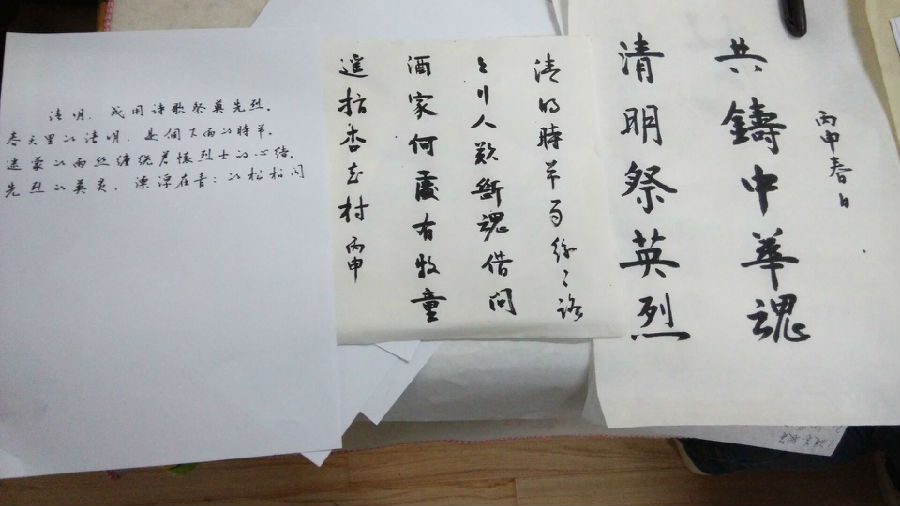 清明，我用诗歌祭奠先烈。
春天里的清明，是個下雨的時节。
迷蒙的雨丝缠绕着懷烈士的心绪。
先烈的英灵，漂漂在青：的松柏间
清明時节雨紛々路
上行人欺斷魂借問
酒家何處有牧童
遥指杏花村 丙申
丙申春日
共鑄中華魂
清明祭英烈